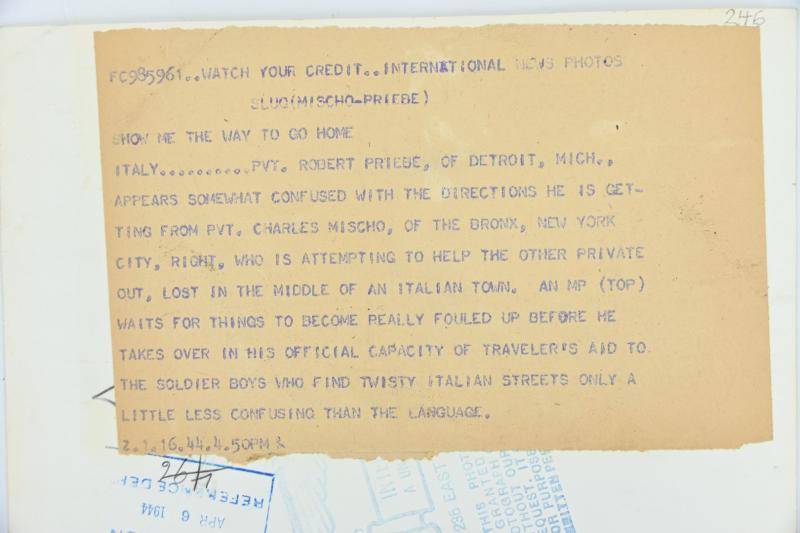 246
FC985961..WATCH YOUR CREDIT..INTERNATIONAL NEWS PHOTOS
SLUG(MISCHO-PRIEBE)
SHOW ME THE WAY TO GO HOME
ITALY..........PVT. ROBERT PRIEBE, OF DETROIT, MICH.,
APPEARS SOMEWHAT CONFUSED WITH THE DIRECTIONS HE IS GET-
TING FROM PVT. CHARLES MISCHO, OF THE BRONX, NEW YORK
CITY, RIGHT, WHO IS ATTEMPTING TO HELP THE OTHER PRIVATE
OUT, LOST IN THE MIDDLE OF AN ITALIAN TOWN. AN MP (TOP)
WAITS FOR THINGS TO BECOME REALLY FOULED UP BEFORE HE
TAKES OVER IN HIS OFFICIAL CAPACITY OF TRAVELER'S AID TO
THE SOLDIER BOYS WHO FIND TWISTY ITALIAN STREETS ONLY A
LITTLE LESS CONFUSING THAN THE LANGUAGE.
Z.1.16.44.4.50PM &
REFERENCE DEP
APR 6 1944
INT
A UN
235 EAST
THIS PHOT
GRANTED
OTOGRAPH
THOUT OUR
PURPOSE
OR PURPO
WRITTEN PER